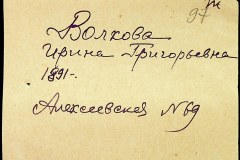 97
Волкова
Ирина Григорьевна
1891-
Алексеевская №69